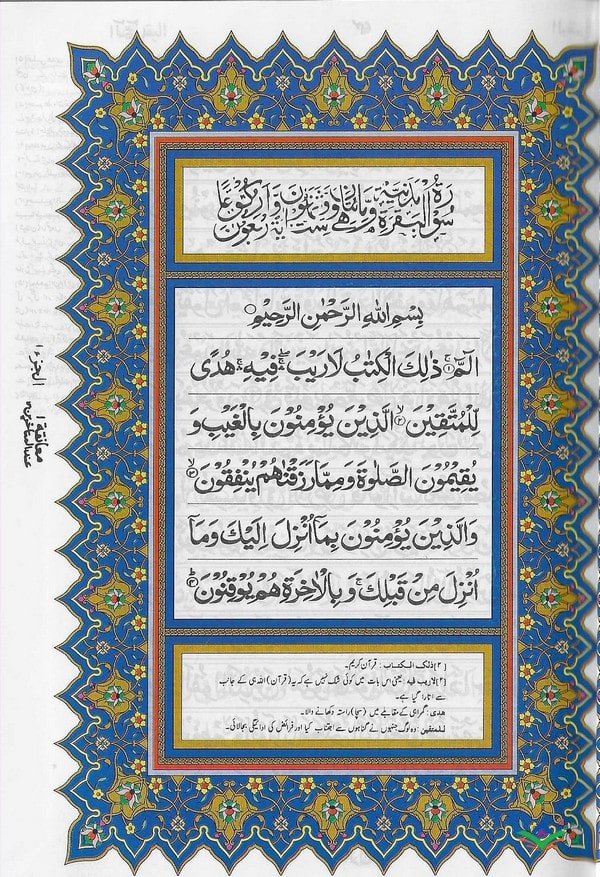 سورة البقرة مدنية وهي مائتان وست وثمانون آية وأربعون ركوعا
بِسْمِ اللهِ الرَّحْمٰنِ الرَّحِيْمِ
الٓمّٓ ۚ﴿۱﴾ ذٰلِكَ الْكِتٰبُ لَا رَيْبَ ۛۖ فِيْهِ ۛۚ هُدًى
لِّلْمُتَّقِيْنَ ۙ﴿۲﴾ الَّذِيْنَ يُؤْمِنُوْنَ بِالْغَيْبِ وَ
يُقِيْمُوْنَ الصَّلٰوةَ وَمِمَّا رَزَقْنٰهُمْ يُنْفِقُوْنَ ۙ﴿۳﴾
وَالَّذِيْنَ يُؤْمِنُوْنَ بِمَاۤ اُنْزِلَ اِلَيْكَ وَمَاۤ
اُنْزِلَ مِنْ قَبْلِكَ ۚ وَبِالْاٰخِرَةِ هُمْ يُوْقِنُوْنَ ؕ﴿۴﴾
[۲] ذٰلک الکتاب : قرآن کریم۔
[۲] لاریب فیه : یعنی اس بات میں کوئی شک نہیں ہے کہ یہ (قرآن) اللہ ہی کے جانب
سے اتارا گیا ہے۔
هدی : گمراہی کے مقابلے میں (سچا) راستہ دکھانے والا۔
للمتقین : وہ لوگ جنہوں نے گناہوں سے اجتناب کیا اور فرائض کی ادائیگی بجالائی۔
الجزء ۱
معانقة ۱